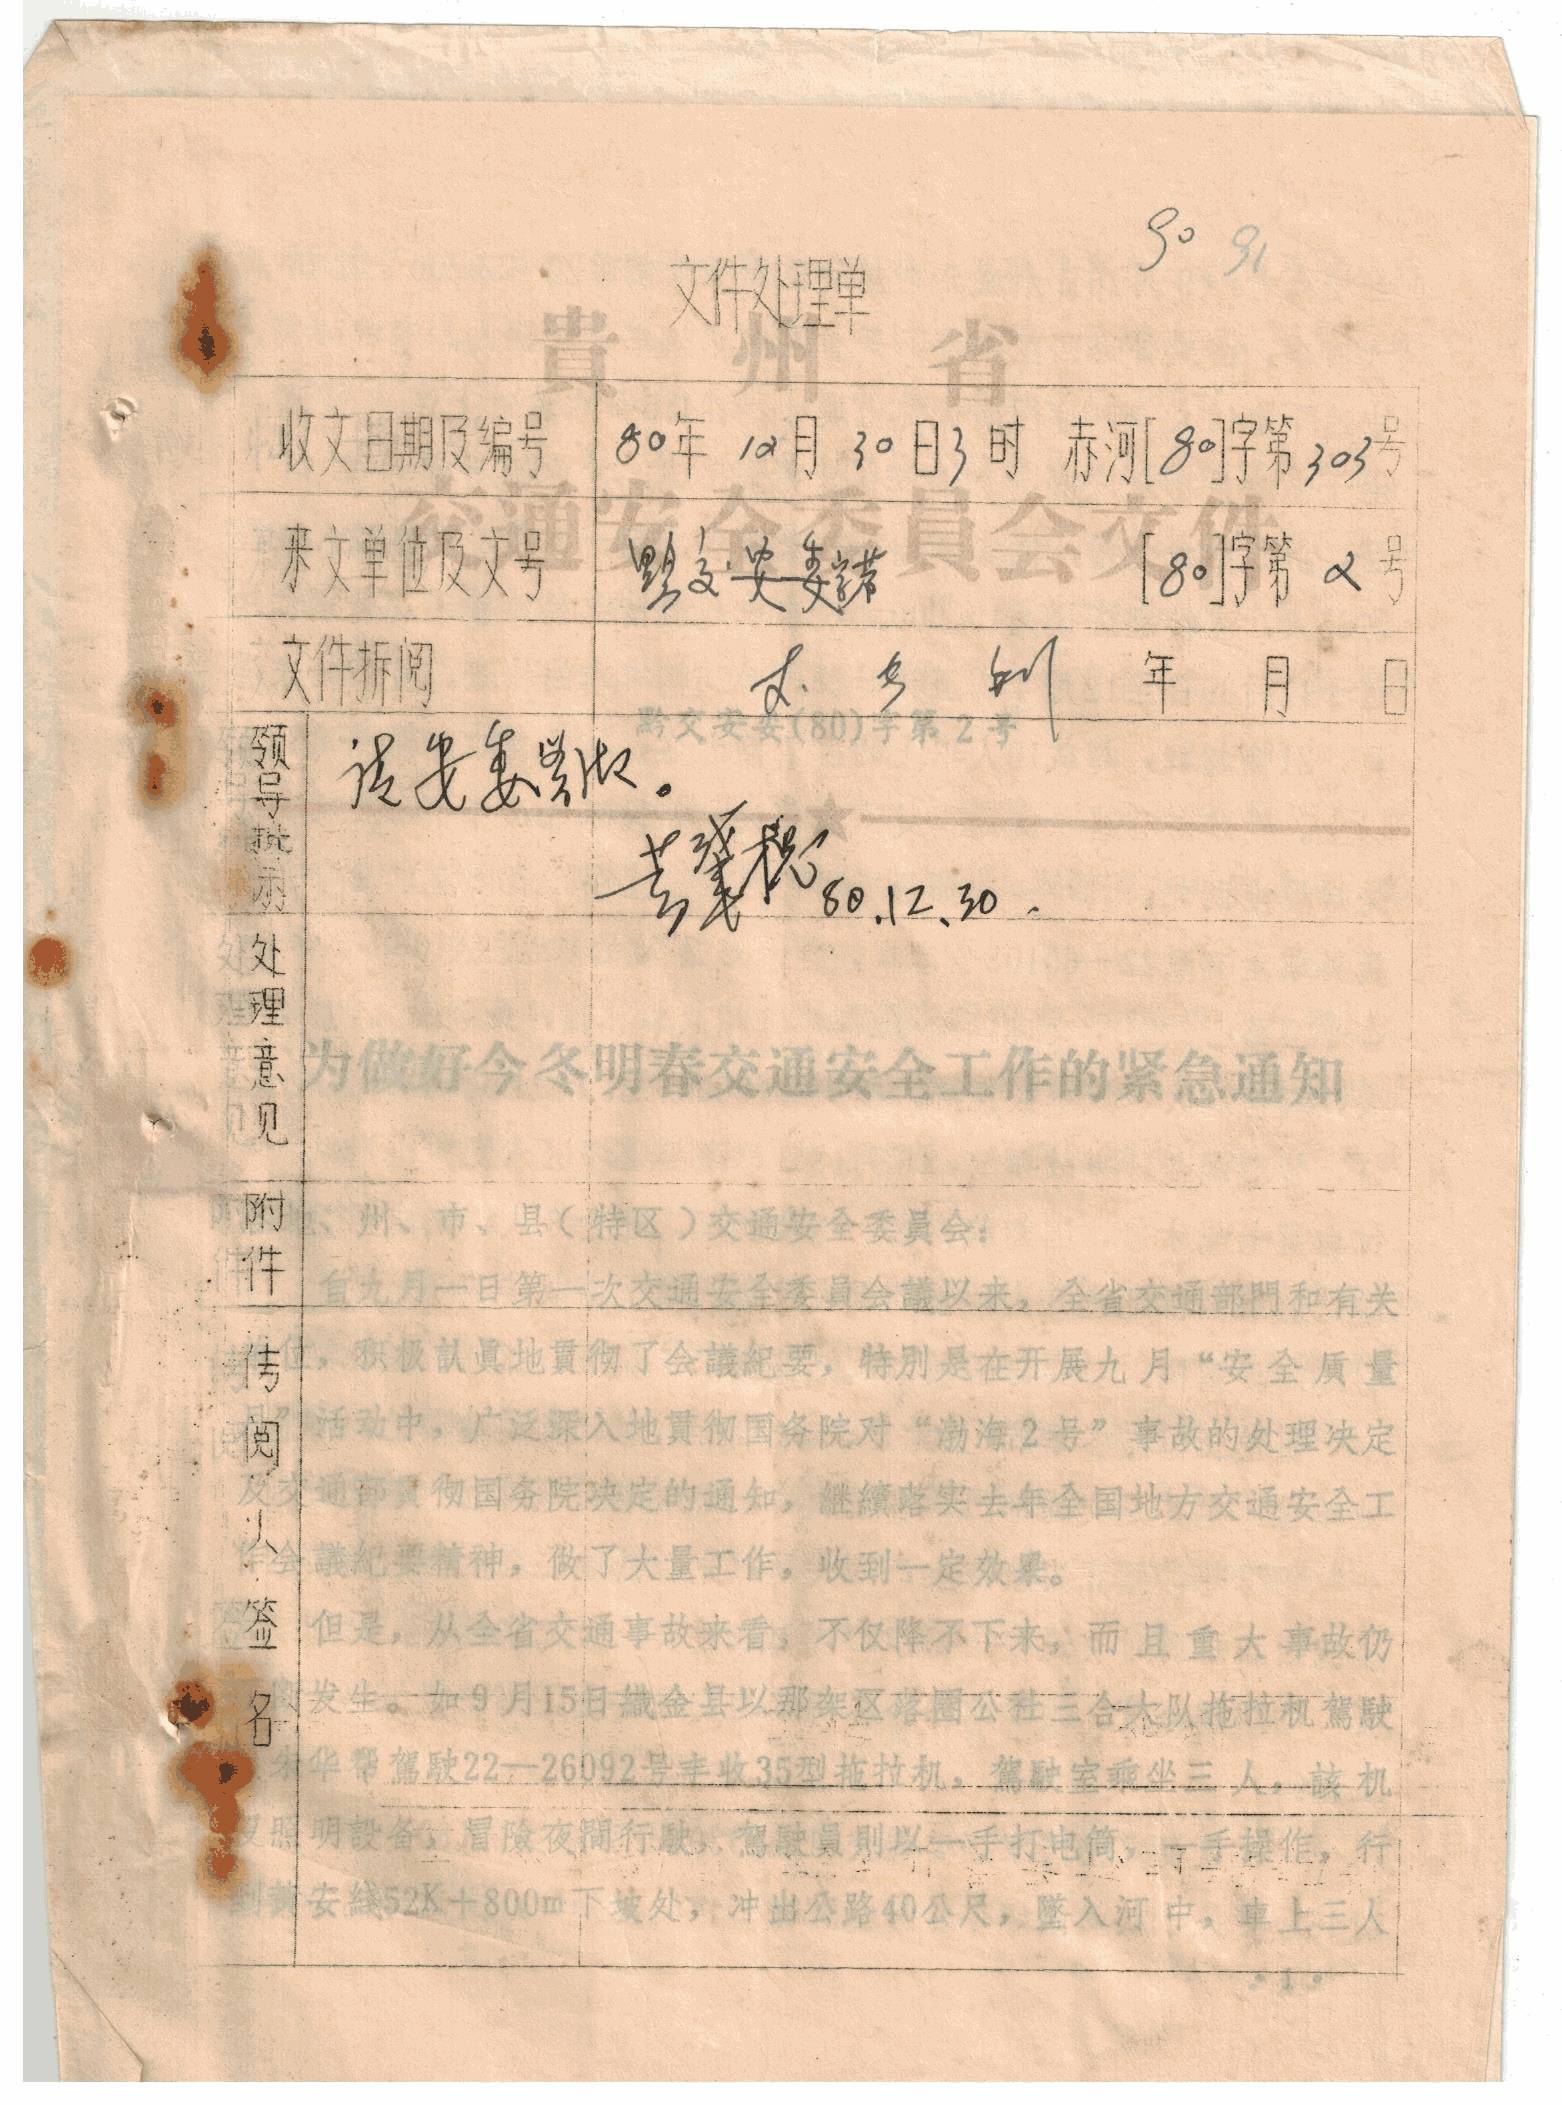 90 91
文件处理单
貴州省
收文日期及编号 80年12月30日3时 赤河[80]字第303号
交通安全委員会文件
来文单位及文号 黔交安委 [80]字第2号
文件拆阅 年 月 日
黔交安委(80)字第2号
领导批示 请安委学做。
80.12.30.
处理意见
为做好今冬明春交通安全工作的紧急通知
附件
、州、市、县(特区)交通安全委員会:
自九月一日第一次交通安全委員会議以来,全省交通部門和有关
位,积极認眞地貫彻了会議紀要,特別是在开展九月“安全质量
月”活动中,广泛深入地貫彻国务院对“渤海2号”事故的处理决定
及交通部貫彻国务院决定的通知,継續落实去年全国地方交通安全工
作会議紀要精神,做了大量工作,收到一定效果。
传阅人签名
但是,从全省交通事故来看,不仅降不下来,而且重大事故仍
发生。如9月15日織金县以那架区落圈公社三合大队拖拉机駕駛
华帮駕駛22—26092号丰收35型拖拉机,駕駛室乘坐三人,該机
没照明設备,冒險夜間行駛,駕駛員則以一手打电筒,一手操作,行
到黄安綫52K+800m下坡处,冲出公路40公尺,墜入河中,車上三人
·1·